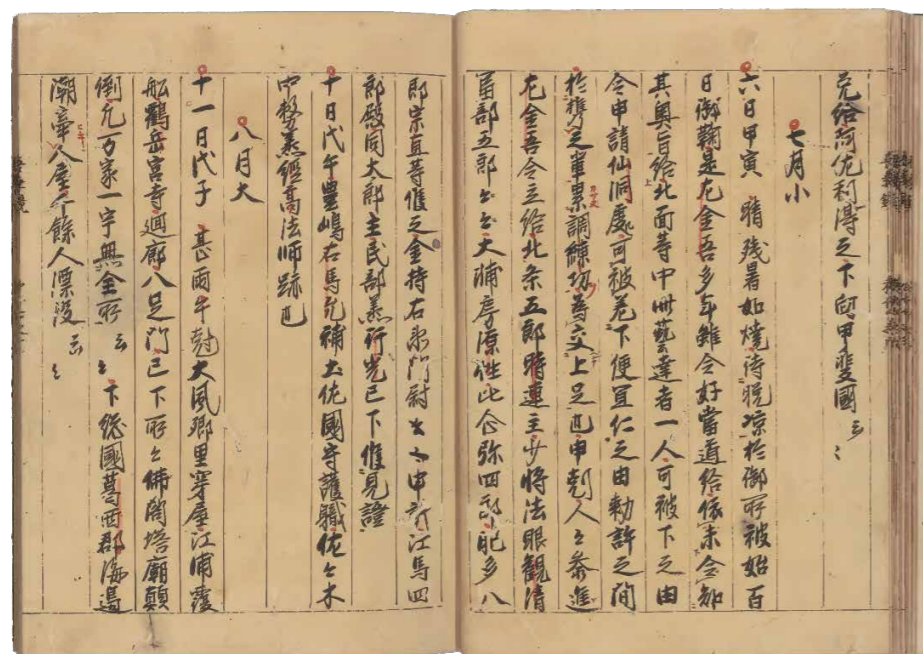 充給阿佐利得之下向甲斐國云々
七月小
六日甲寅 晴残暑如焼待晩凉於御所被始百
日御鞠是左金吾多年雖令好當道給依未令知
其奥旨給北面等中此藝達者一人可被下之由
令申請仙洞處可被差下便宜仁之由勅許之間
於携之輩累調練功為交上足也申剋人々参進
左金吾令立給北条五郎時連主少将法眼観清
冨部五郎 大輔房源性比企弥四郎肥多八
郎宗直等候之金持右衛門尉 申 江馬四
郎殿同大郎主民部蒸行光已下候見證
十日代午豊嶋右馬允補土佐國守護職佐々木
中務蒸經高法師跡也
八月大
十一日代子 甚雨午尅大風郷里穿屋江浦覆
舩鶴岳宮寺廻廊八足門已下所々佛閣塔廟顛
倒凢万家一宇無全所云々下総國葛西郡海邉
潮牽人屋千餘人漂没云々